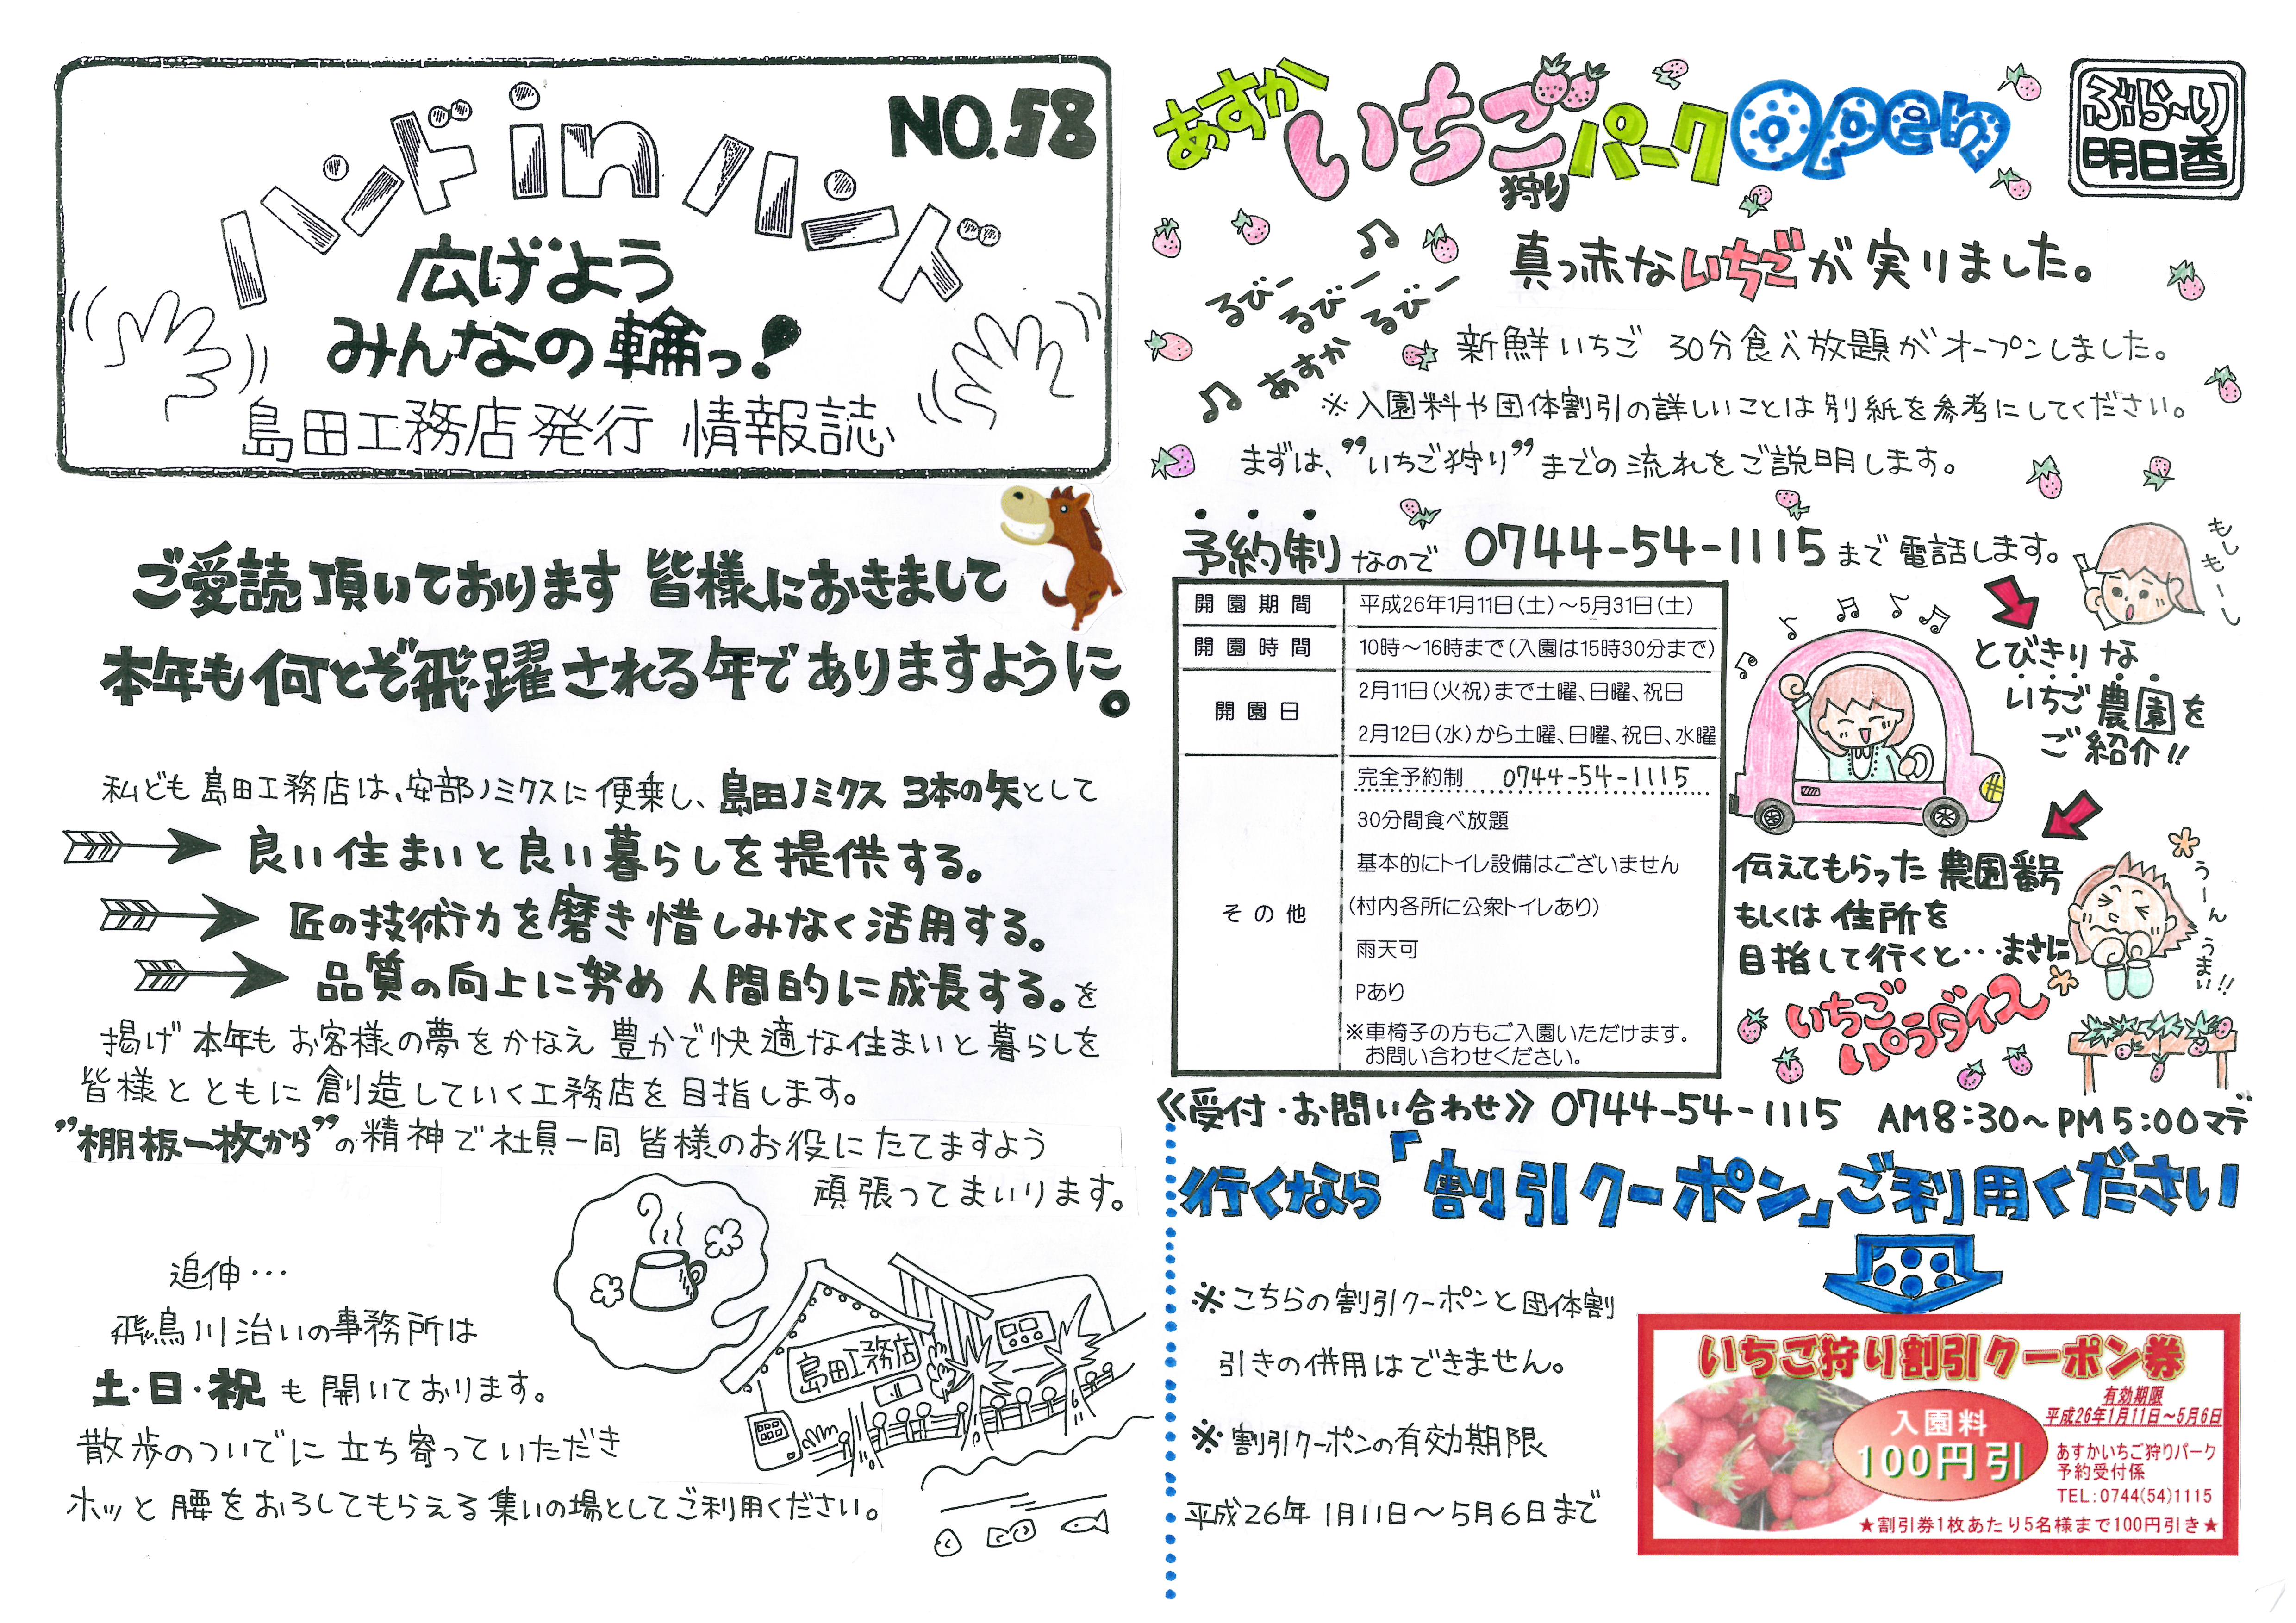 ハンド in ハンド
NO.58
広げよう
みんなの輪っ!
島田工務店発行 情報誌
ご愛読頂いております 皆様におきまして
本年も何とぞ飛躍される年でありますように。
私ども島田工務店は、安部ノミクスに便乗し、島田ノミクス 3本の矢として
良い住まいと良い暮らしを提供する。
匠の技術力を磨き惜しみなく活用する。
品質の向上に努め 人間的に成長する。を
揚げ 本年も お客様の夢をかなえ 豊かで快適な住まいと暮らしを
皆様とともに 創造していく工務店を目指します。
”棚板一枚から”の精神で社員一同 皆様のお役にたてますよう
頑張ってまいります。
追伸…
飛鳥川治いの事務所は
土・日・祝も開いております。
散歩のついでに立ち寄っていただき
ホッと腰をおろしてもらえる集いの場としてご利用ください。
島田工務店
あすか いちご狩り パーク open
ぶら〜り
明日香
真っ赤ないちごが実りました。
るびー るびー るびー
あすか
新鮮いちご 30分食べ放題がオープンしました。
※入園料や団体割引の詳しいことは別紙を参考にしてください。
まずは、”いちご狩り”までの流れをご説明します。
予約制なので 0744-54-1115まで電話します。
もしもーし
開園期間 平成26年1月11日(土)〜5月31日(土)
開園時間 10時〜16時まで(入園は15時30分まで)
開園日 2月11日(火祝)まで土曜、日曜、祝日
2月12日(水)から土曜、日曜、祝日、水曜
その他 完全予約制 0744-54-1115
30分間食べ放題
基本的にトイレ設備はございません
(村内各所に公衆トイレあり)
雨天可
Pあり
※車椅子の方もご入園いただけます。
お問い合わせください。
とびきりな
いちご農園を
ご紹介!!
伝えてもらった 農園番号
もしくは 住所を
目指して行くと…まさに
いちご
パラダイス
うーん うまい!!
《受付・お問い合わせ》 0744-54-1115 AM8:30〜PM5:00マデ
行くなら「割引クーポン」ご利用ください
※こちらの割引クーポンと団体割
引きの併用はできません。
※割引クーポンの有効期限
平成26年 1月11日〜5月6日まで
いちご狩り割引クーポン券
有効期限
平成26年1月11日〜5月6日
入園料
100円引
あすかいちご狩りパーク
予約受付係
TEL:0744(54)1115
★割引券1枚あたり5名様まで100円引き★